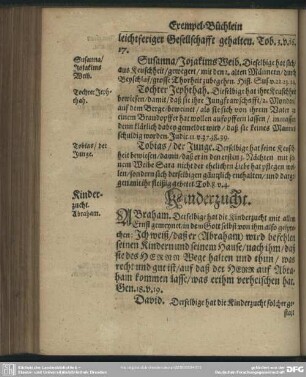 Exempel-Büchlein
leichtfertiger Gesellschafft gehalten. Tob. 3. v. 16.
17.
Susanna/
Jojakims
Weib.
Susanna/ Jojakims Weib. Dieselbige hat sich
aus Keuschheit/ gewegert/ mit den 2. alten Männern/ durch
Beyschlaf/ grosse Thorheit zubegehen. Hist. Sus. v. 22. 23.
Tochter Jeph-
thah.
Tochter Jephthah. Dieselbige hat ihre Keuschheit
bewiesen/ damit/ daß sie ihre Jungfrauschafft/ 2. Monden
auf dem Berge beweinet/ als sie sich von ihrem Vater zu
einem Brandopffer hat wollen aufopffern lassen/ immassen
denn klärlich dabey gemeldet wird/ daß sie keines Mannes
schuldig worden. Judic. 11. v. 37. 38. 39.
Tobias/ der
Junge.
Tobias/ der Junge. Dieselbige hat seine Keusch-
heit bewiesen/ damit/ daß er in den ersten 3. Nächten mit sei-
nem Weibe Sara nicht der ehelichen Liebe hat pflegen wol-
len/ sondern sich derselbigen gäntzlich enthalten/ und dar-
gegen mit ihr fleißig gebetet. Tob. 8. v. 4.
Kinderzucht.
Kinder-
zucht.
Abraham.
ABraham. Derselbige hat die Kinderzucht mit allem
Ernst gemeynet/ an dem Gott selbst von ihm also gespro-
chen: Ich weiß/ daß er (Abraham) wird befehlen
seinen Kindern und seinem Hause/ nach ihm/ daß
sie des HERRN Wege halten und thun/ was
recht und gut ist/ auf daß der HERR auf Abra-
ham kommen lasse/ was er ihm verheischen hat.
Gen. 18. v. 19.
David. Derselbige hat die Kinderzucht solcher ge-
stalt